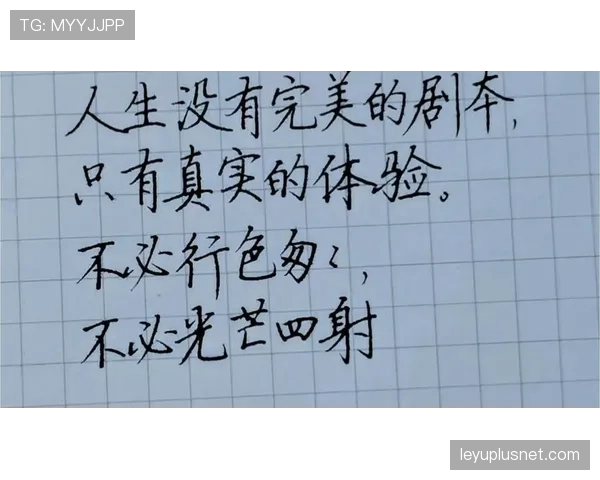 TG: MYYJJPP
人生没有完美的剧本,
只有真实的体验。
不必行色匆匆,
不必光芒四射
leyuplusnet.com